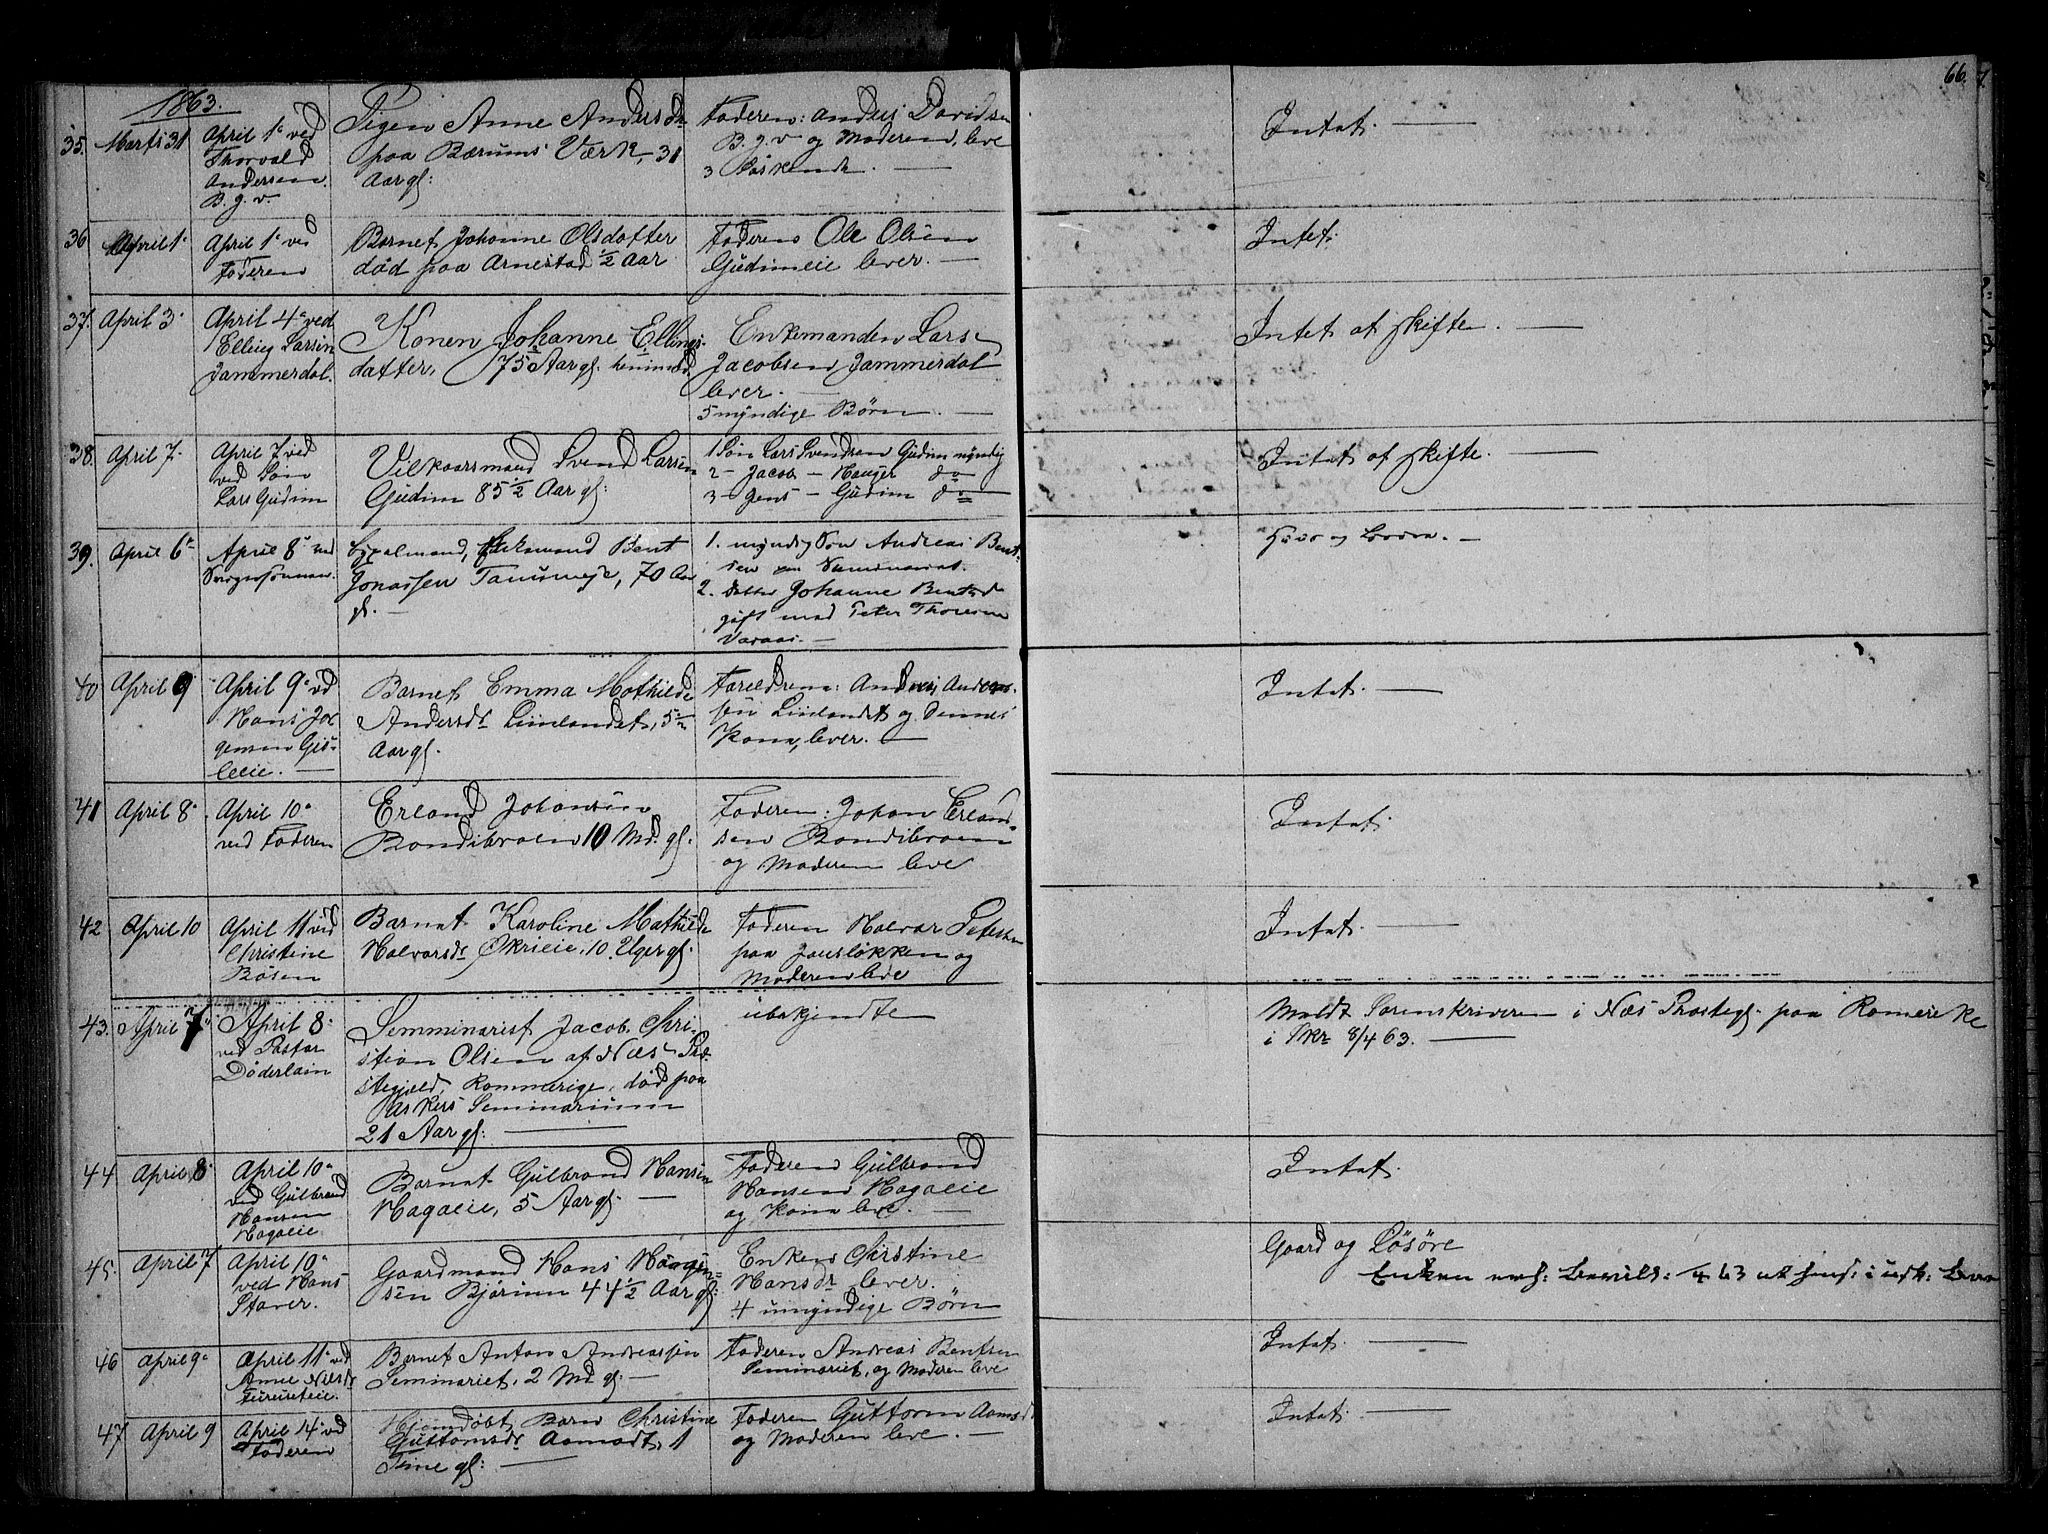 66.
1863.
35. Marts 31 April 1ᵉ ved Thorvald Andersen B. g. v. Pigen Anne Andersdr paa Bærums Værk, 31 Aar gl: Faderen: Anders Davidsen B. g. v og Moderen, leve 3 Søskende. — Intet. —
36 April 1ᵉ April 1ᵉ ved Faderen Barnet Johanne Olsdatter død paa Arnestad ½ Aar Faderen Ole Olsen Gudimeie lever. — Intet.
37. April 3ᵉ April 4ᵉ ved Elling Larsen Jammerdal. Konen Johanne Ellingsdatter, 75 Aar gl. Enkemanden Lars Jacobsen Jammerdal lever. — 5 myndige Børn. — Intet at skifte. —
38. April 7. April 7 ved ved Søn Lars Gudim Vilkaarsmand Svend Larsen Gudim 85½ Aar gl: 1 Søn Lars Svendsen Gudim myndig 2 — Jacob — Hauger do 3 — Jens — Gudim do Intet at skifte. —
39. April 6ᵉ April 8ᵉ ved Bent Jonassen 70 Aar gl. — 1. myndig Søn Andreas Bentsen Seminariet. 2. Datter Johanne Bentsd gift med Peter Thoresen —
40 April 9 April 9ᵉ vd Hans Jørgensen Barnet Emma Mathilde Andersdr Linlandet, 5½ Aar gl. Forældrene: Anders Anderssen Linlandet og Dennes Kone, lever. — Intet. —
41 April 8ᵉ April 10ᵉ ved Faderen Erland Johansen Bondibraaen 10 Md. gl. Faderen: Johan Erlandsen Bondibraaen og Moderen leve Intet.
42 April 10 April 11 ved Christine Bøsen Barnet Karoline Mathilde Halvorsdr Økrieie, 10 Uger gl. Faderen Halvor Petersen paa Jansløkken og Moderen leve Intet. —
43. April 7ᵉ April 8ᵉ ved Pastor Døderlain Semminarist Jacob Christian Olsen af Næs Præstegjeld, Rommerige, død paa Askers Seminarium 21 Aar gl: — ubekjendte Meldt Sorenskriveren i Næs Præstegj. paa Romerike i Skr 8/4 63. —
44 April 8ᵉ April 10ᵉ ved Gulbrand Hansen Hagaeie Barnet Gulbrand Hansen Hagaeie, 5 Aar gl. — Faderen Gulbrand Hansen Hagaeie og Kone leve. — Intet.
45. April 7 April 10ᵉ ved Hans Staver. Gaardmand Hans Bjørum 44½ Aar gl: Enken Christine Hansdr lever. 4 umyndige Børn Gaard og Løsøre
Enken
46 April 9ᵉ April 11ᵉ ved Anne Nilsdr Barnet Anton Andreassen Seminariet, 2 Md gl: — Faderen Andreas Bentsen Seminariet, og Moderen leve Intet. —
47 April 9 April 14 ved Faderen Hjemdøbt Barn Christine Guttomsdr Aamodt, 1 Time gl: — Faderen Guttorm Aamodt og Moderen leve. — Intet. —